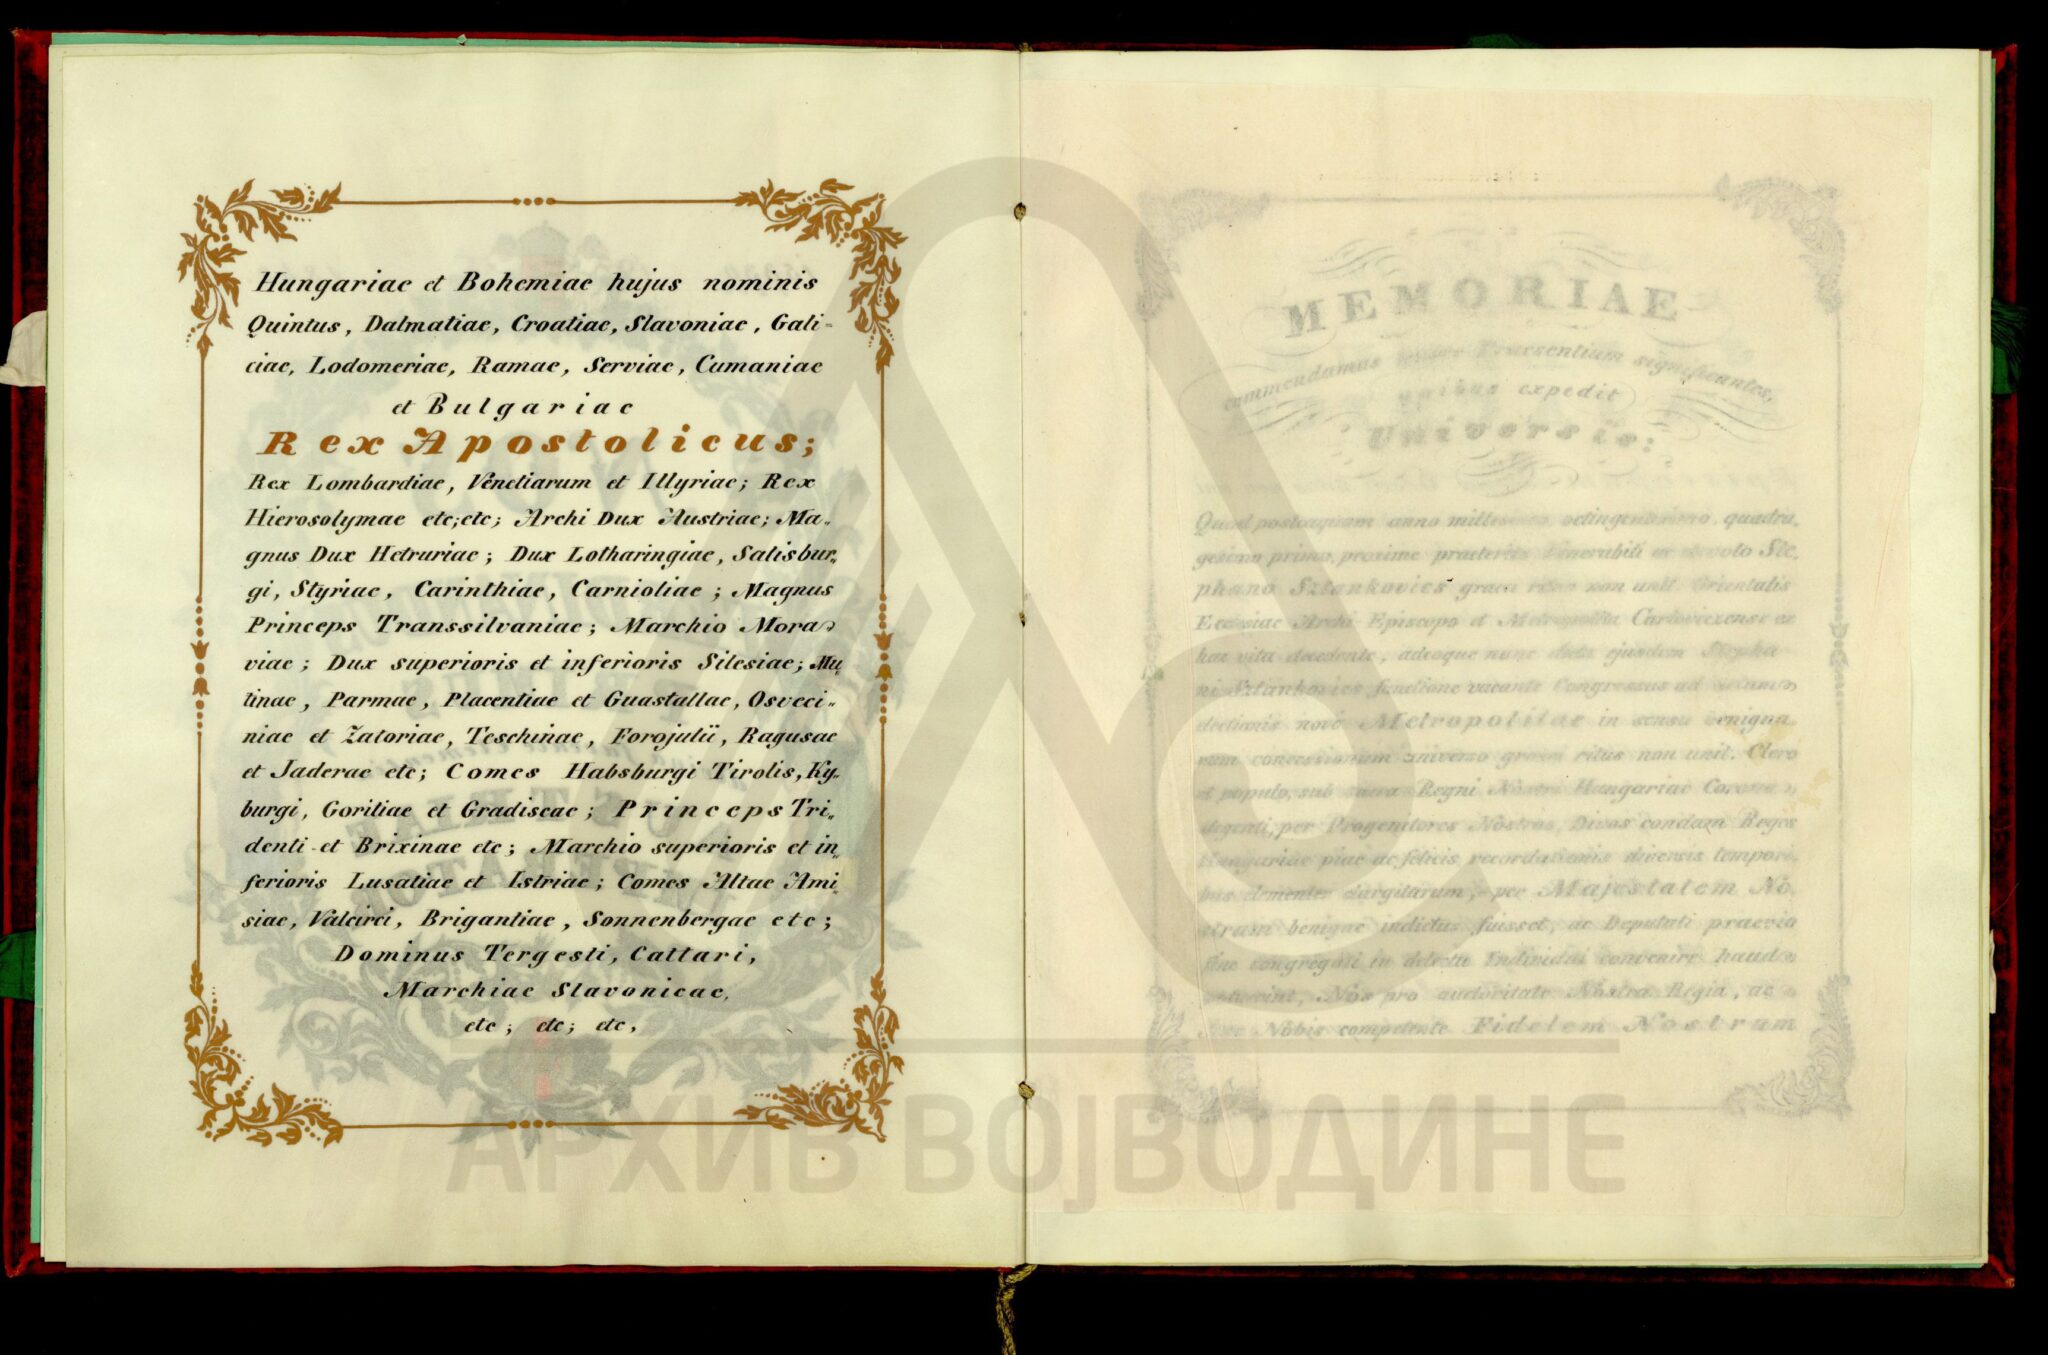 Hungariae et Bohemiae hujus nominis
Quintus, Dalmatiae, Croatiae, Slavoniae, Gali-
ciae, Lodomeriae, Ramae, Serviae, Cumaniae
et Bulgariae
Rex Apostolicus;
Rex Lombardiae, Venetiarum et Illyriae; Rex
Hierosolymae etc; etc; Archi Dux Austriae; Ma-
gnus Dux Hetruriae; Dux Lotharingiae, Salisbur-
gi, Styriae, Carinthiae, Carnioliae; Magnus
Princeps Transsilvaniae; Marchio Mora-
viae; Dux superioris et inferioris Silesiae; Mu-
tinae, Parmae, Placentiae et Guastallae, Osveci-
niae et Zatoriae, Teschinae, Forojulii, Ragusae
et Jaderae etc; Comes Habsburgi Tirolis, Ky-
burgi, Goritiae et Gradiscae; Princeps Tri-
denti et Brixinae etc; Marchio superioris et in-
ferioris Lusatiae et Istriae; Comes Altae Ami-
siae, Valcirci, Brigantiae, Sonnenbergae etc;
Dominus Tergesti, Cattari,
Marchiae Slavonicae,
etc; etc; etc,
MEMORIAE
commendamus Praesentium significantes,
expedit
Universis:
Quod posteaquam anno octingentesimo quadra-
gesimo primo, proxime Venerabili ac devoto Ste-
phano Sztankovics graeci ritus non unit. Orientalis
Ecclesiae Archi Episcopo et Metropolita Carlovicense ex
hac vita decedente, adeoque nunc ejusdem Stepha-
ni Sztankovics functione vacante Congressus ad
electionis novi Metropolitae in sensu benigna-
rum concessionum universo graeci ritus non unit. Clero
et populo, sub sacra Regni Hungariae Corona
degenti, per Progenitores Nostros, Divos condam Reges
Hungariae piae ac felicis recordationis diversis tempori-
bus clementer elargitarum, per Majestatem No-
stram benigne indictus fuisset, ac Deputati praevio
fine congregati in convenire haud
Nos pro auctoritate Nostra Regia, ac
Nobis competente Fidelem Nostrum
АРХИВ ВОЈВОДИНЕ